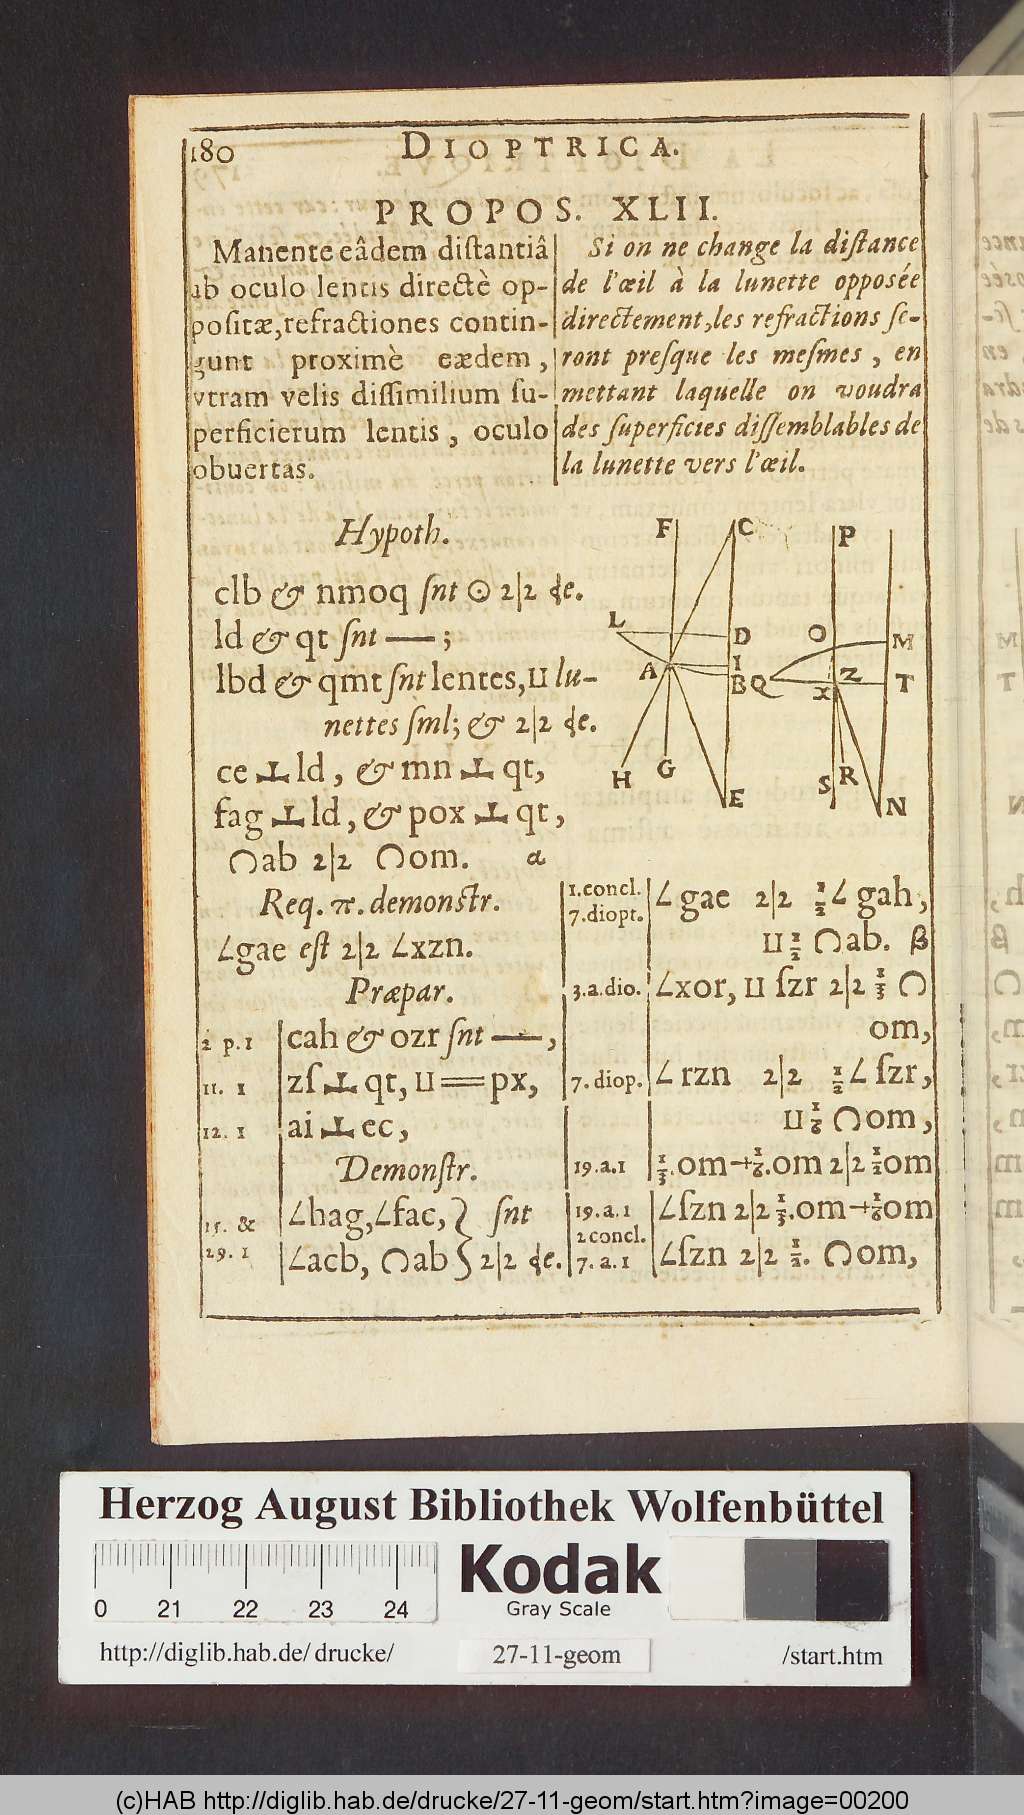 180 DIOPTRICA.
PROPOS. XLII.
Manente eâdem distantiâ
ab oculo lentis directè op-
positæ, refractiones contin-
gunt proximè eædem,
vtram velis dissimilium su-
perficierum lentis, oculo
obuertas.
Si on ne change la distance
de l'œil à la lunette opposée
directement, les refractions se-
ront presque les mesmes, en
mettant laquelle on voudra
des superficies dissemblables de
la lunette vers l'œil.
Hypoth.
clb & nmoq snt ⊙ 2|2 de.
ld & qt snt —;
lbd & qmt snt lentes, ⊔ lu-
nettes sml; & 2|2 de.
ce ⊥ ld, & mn ⊥ qt,
fag ⊥ ld, & pox ⊥ qt,
∩ab 2|2 ∩om. α
Req. π. demonstr.
∠gae est 2|2 ∠xzn.
Præpar.
2 p. 1 cah & ozr snt —,
11. 1 zs ⊥ qt, ⊔ = px,
12. 1 ai ⊥ ec,
Demonstr.
15. & ∠hag, ∠fac, } snt
29. 1 ∠acb, ∩ab } 2|2 de.
F C P
L D O M
A I Z
B Q X T
H G E S R N
1. concl.
7. diopt. ∠gae 2|2 1/2 ∠gah,
⊔ 1/2 ∩ab. β
3. a. dio. ∠xor, ⊔ szr 2|2 1/3 ∩
om,
7. diop. ∠rzn 2|2 1/2 ∠szr,
⊔ 1/6 ∩om,
19. a. 1 1/3. om + 1/6. om 2|2 1/2 om
19. a. 1 ∠szn 2|2 1/3. om + 1/6 om
2 concl.
7. a. 1 ∠szn 2|2 1/2. ∩om,
Herzog August Bibliothek Wolfenbüttel
0 21 22 23 24
Kodak
Gray Scale
http://diglib.hab.de/drucke/ 27-11-geom /start.htm
(c)HAB http://diglib.hab.de/drucke/27-11-geom/start.htm?image=00200